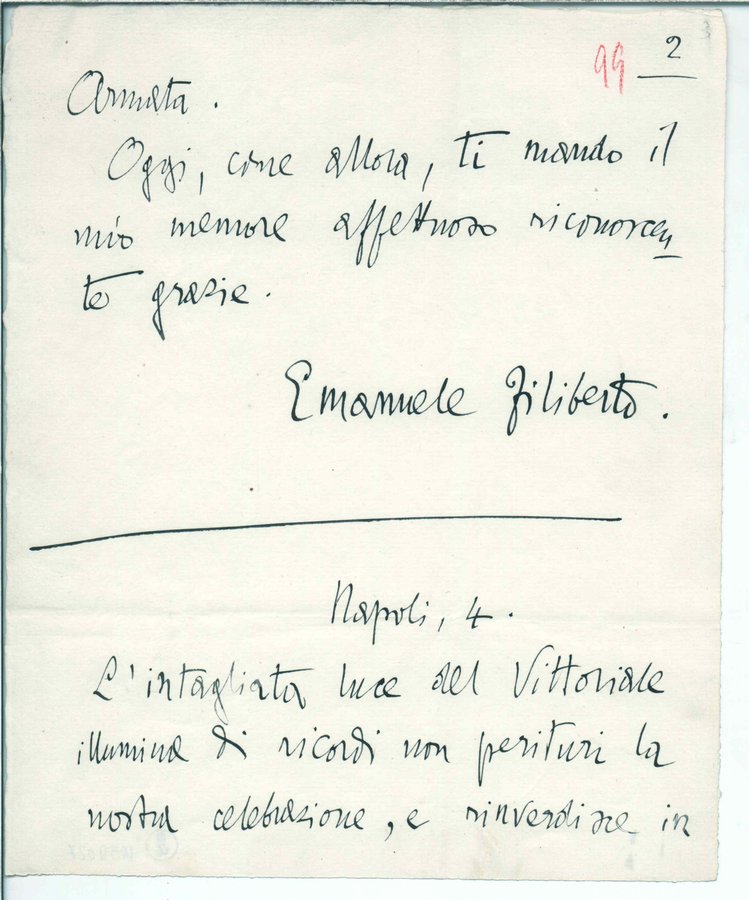 99 2
Armata.
Oggi, come allora, ti mando il
mio memore affettuoso riconoscen
te grazie.
Emanuele Filiberto.
Napoli, 4.
L'intagliata luce del Vittoriale
illumina di ricordi non perituri la
nostra celebrazione, e rinverdisce in